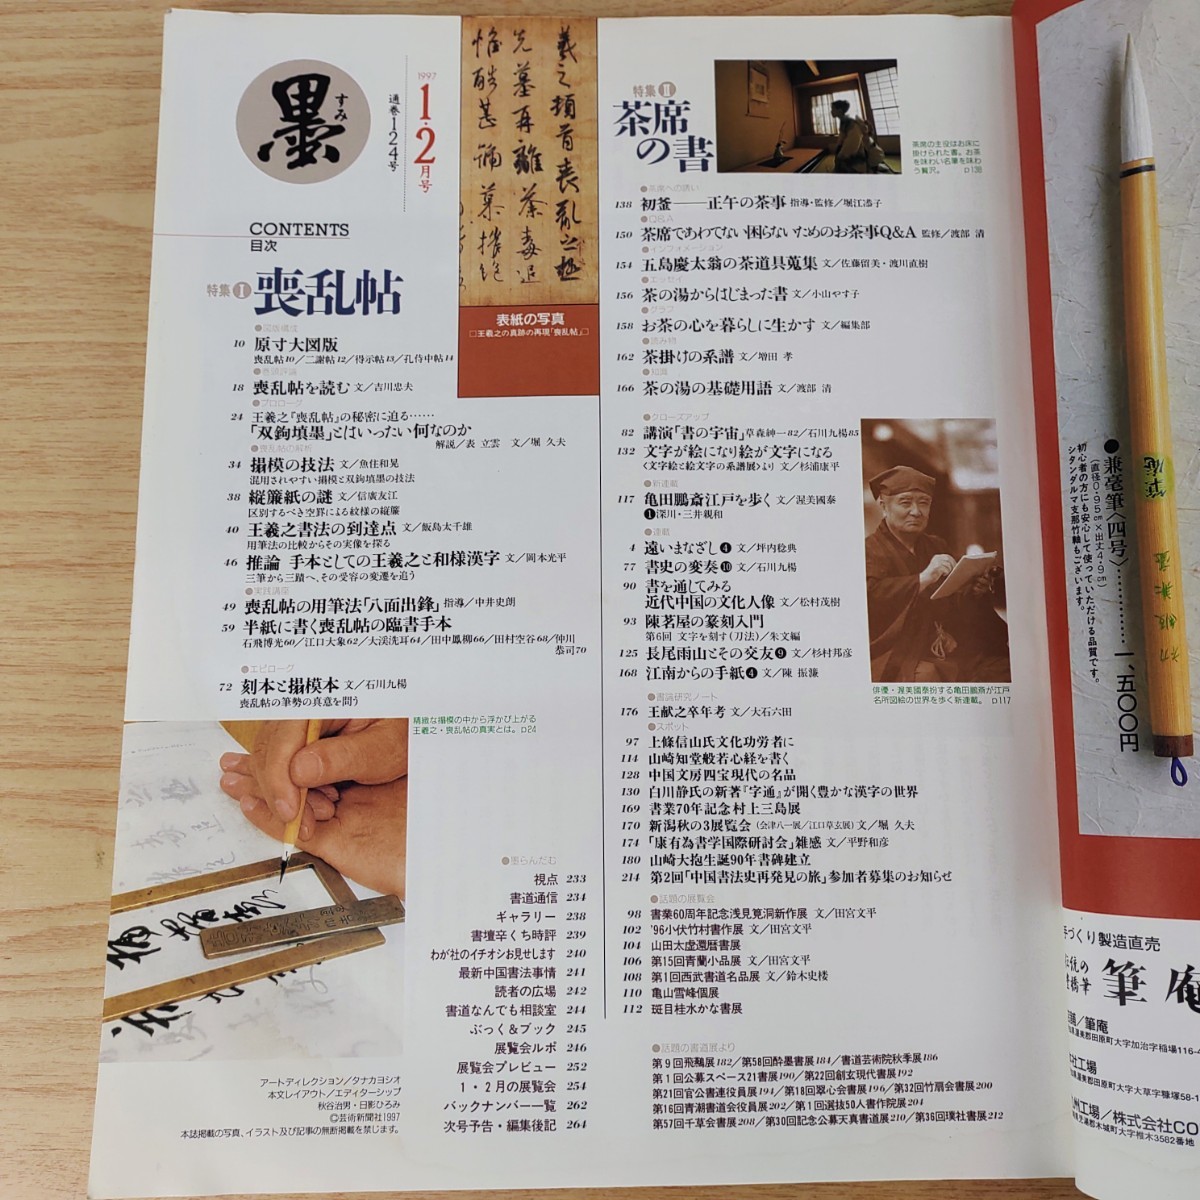 墨
すみ
1997
1・2月号
通巻124号
CONTENTS
目次
羲之頓首喪乱之極
先墓再離荼毒追
惟酷甚
表紙の写真
□王羲之の真跡の再現「喪乱帖」□
特集Ⅰ 喪乱帖
●図版構成
10 原寸大図版
喪乱帖10／二謝帖12／得示帖13／孔侍中帖14
●巻頭評論
18 喪乱帖を読む 文／吉川忠夫
●プロローグ
24 王羲之『喪乱帖』の秘密に迫る……
「双鉤填墨」とはいったい何なのか
解説／表 立雲 文／堀 久夫
●喪乱帖の解析
34 搨模の技法 文／魚住和晃
混用されやすい搨模と双鉤填墨の技法
38 縦簾紙の謎 文／信廣友江
区別するべき空罫による紋様の縦簾
40 王羲之書法の到達点 文／飯島太千雄
用筆法の比較からその実像を探る
46 推論 手本としての王羲之と和様漢字 文／岡本光平
三筆から三蹟へ、その受容の変遷を追う
●実践講座
49 喪乱帖の用筆法「八面出鋒」 指導／中井史朗
59 半紙に書く喪乱帖の臨書手本
石飛博光60／江口大象62／大渓洗耳64／田中鳳柳66／田村空谷68／仲川恭司70
●エピローグ
72 刻本と搨模本 文／石川九楊
喪乱帖の筆勢の真意を問う
精緻な搨模の中から浮かび上がる
王羲之・喪乱帖の真実とは。p24
●墨らんだむ
視点 233
書道通信 234
ギャラリー 238
書壇辛くち時評 239
わが社のイチオシお見せします 240
最新中国書法事情 241
読者の広場 242
書道なんでも相談室 244
ぶっく＆ブック 245
展覧会ルポ 246
展覧会プレビュー 252
1・2月の展覧会 254
バックナンバー一覧 262
次号予告・編集後記 264
アートディレクション／タナカヨシオ
本文レイアウト／エディターシップ
秋谷治男・日影ひろみ
©芸術新聞社1997
本誌掲載の写真、イラスト及び記事の無断掲載を禁じます。
特集Ⅱ
茶席の書
茶席の主役はお床に
掛けられた書。お茶
を味わい名筆を味わ
う贅沢。 p138
●茶席への誘い
138 初釜――正午の茶事 指導・監修／堀江恭子
●Q&A
150 茶席であわてない困らないためのお茶事Q&A 監修／渡部 清
●インフォメーション
154 五島慶太翁の茶道具蒐集 文／佐藤留美・渡川直樹
●エッセイ
156 茶の湯からはじまった書 文／小山やす子
●グラフ
158 お茶の心を暮らしに生かす 文／編集部
●読み物
162 茶掛けの系譜 文／増田 孝
●知識
166 茶の湯の基礎用語 文／渡部 清
●クローズアップ
82 講演「書の宇宙」 草森紳一82／石川九楊85
132 文字が絵になり絵が文字になる
〈文字絵と絵文字の系譜展〉より 文／杉浦康平
●新連載
117 亀田鵬斎江戸を歩く 文／渥美國泰
❶深川・三井親和
●連載
4 遠いまなざし❹ 文／坪内稔典
77 書史の変奏❿ 文／石川九楊
90 書を通してみる
近代中国の文化人像 文／松村茂樹
93 陳茗屋の篆刻入門
第6回 文字を刻す（刀法）／朱文編
125 長尾雨山とその交友❾ 文／杉村邦彦
168 江南からの手紙❹ 文／陳 振濂
俳優・渥美國泰扮する亀田鵬斎が江戸
名所図絵の世界を歩く新連載。 p117
●書論研究ノート
176 王献之卒年考 文／大石六田
●スポット
97 上條信山氏文化功労者に
114 山崎知堂般若心経を書く
128 中国文房四宝現代の名品
130 白川静氏の新著『字通』が開く豊かな漢字の世界
169 書業70年記念村上三島展
170 新潟秋の3展覧会（会津八一展／江口草玄展） 文／堀 久夫
174 「康有為書学国際研討会」雑感 文／平野和彦
180 山崎大抱生誕90年書碑建立
214 第2回「中国書法史再発見の旅」参加者募集のお知らせ
●話題の展覧会
98 書業60周年記念浅見筧洞新作展 文／田宮文平
102 '96小伏竹村書作展 文／田宮文平
104 山田太虚還暦書展
106 第15回青蘭小品展 文／田宮文平
108 第1回西武書道名品展 文／鈴木史楼
110 亀山雪峰個展
112 斑目桂水かな書展
●話題の書道展より
第9回飛鵝展182／第58回酔墨書展184／書道芸術院秋季展186
第1回公募スペース21書展190／第22回創玄現代書展192
第21回官公書連役員展194／第18回翠心会書展196／第32回竹扇会書展200
第16回青潮書道会役員展202／第1回選抜50人書作院展204
第57回千草会書展208／第30回記念公募天真書道展210／第36回璞社書展212
●兼毫筆〈四号〉…………一、五〇〇円
（直径0.95cm×出丈4.9cm）
初心者の方にも安心して使っていただける品質です。
シタンダルマ支那竹軸もございます。
筆庵
づくり製造直売
伝統の
豊橋筆 筆庵
店舗／筆庵
県渥美郡田原町大字加治字稲場116-4
社工場
県渥美郡田原町大字大草字糠塚58-1
州工場／株式会社CO
県児湯郡木城町大字椎木3582番地